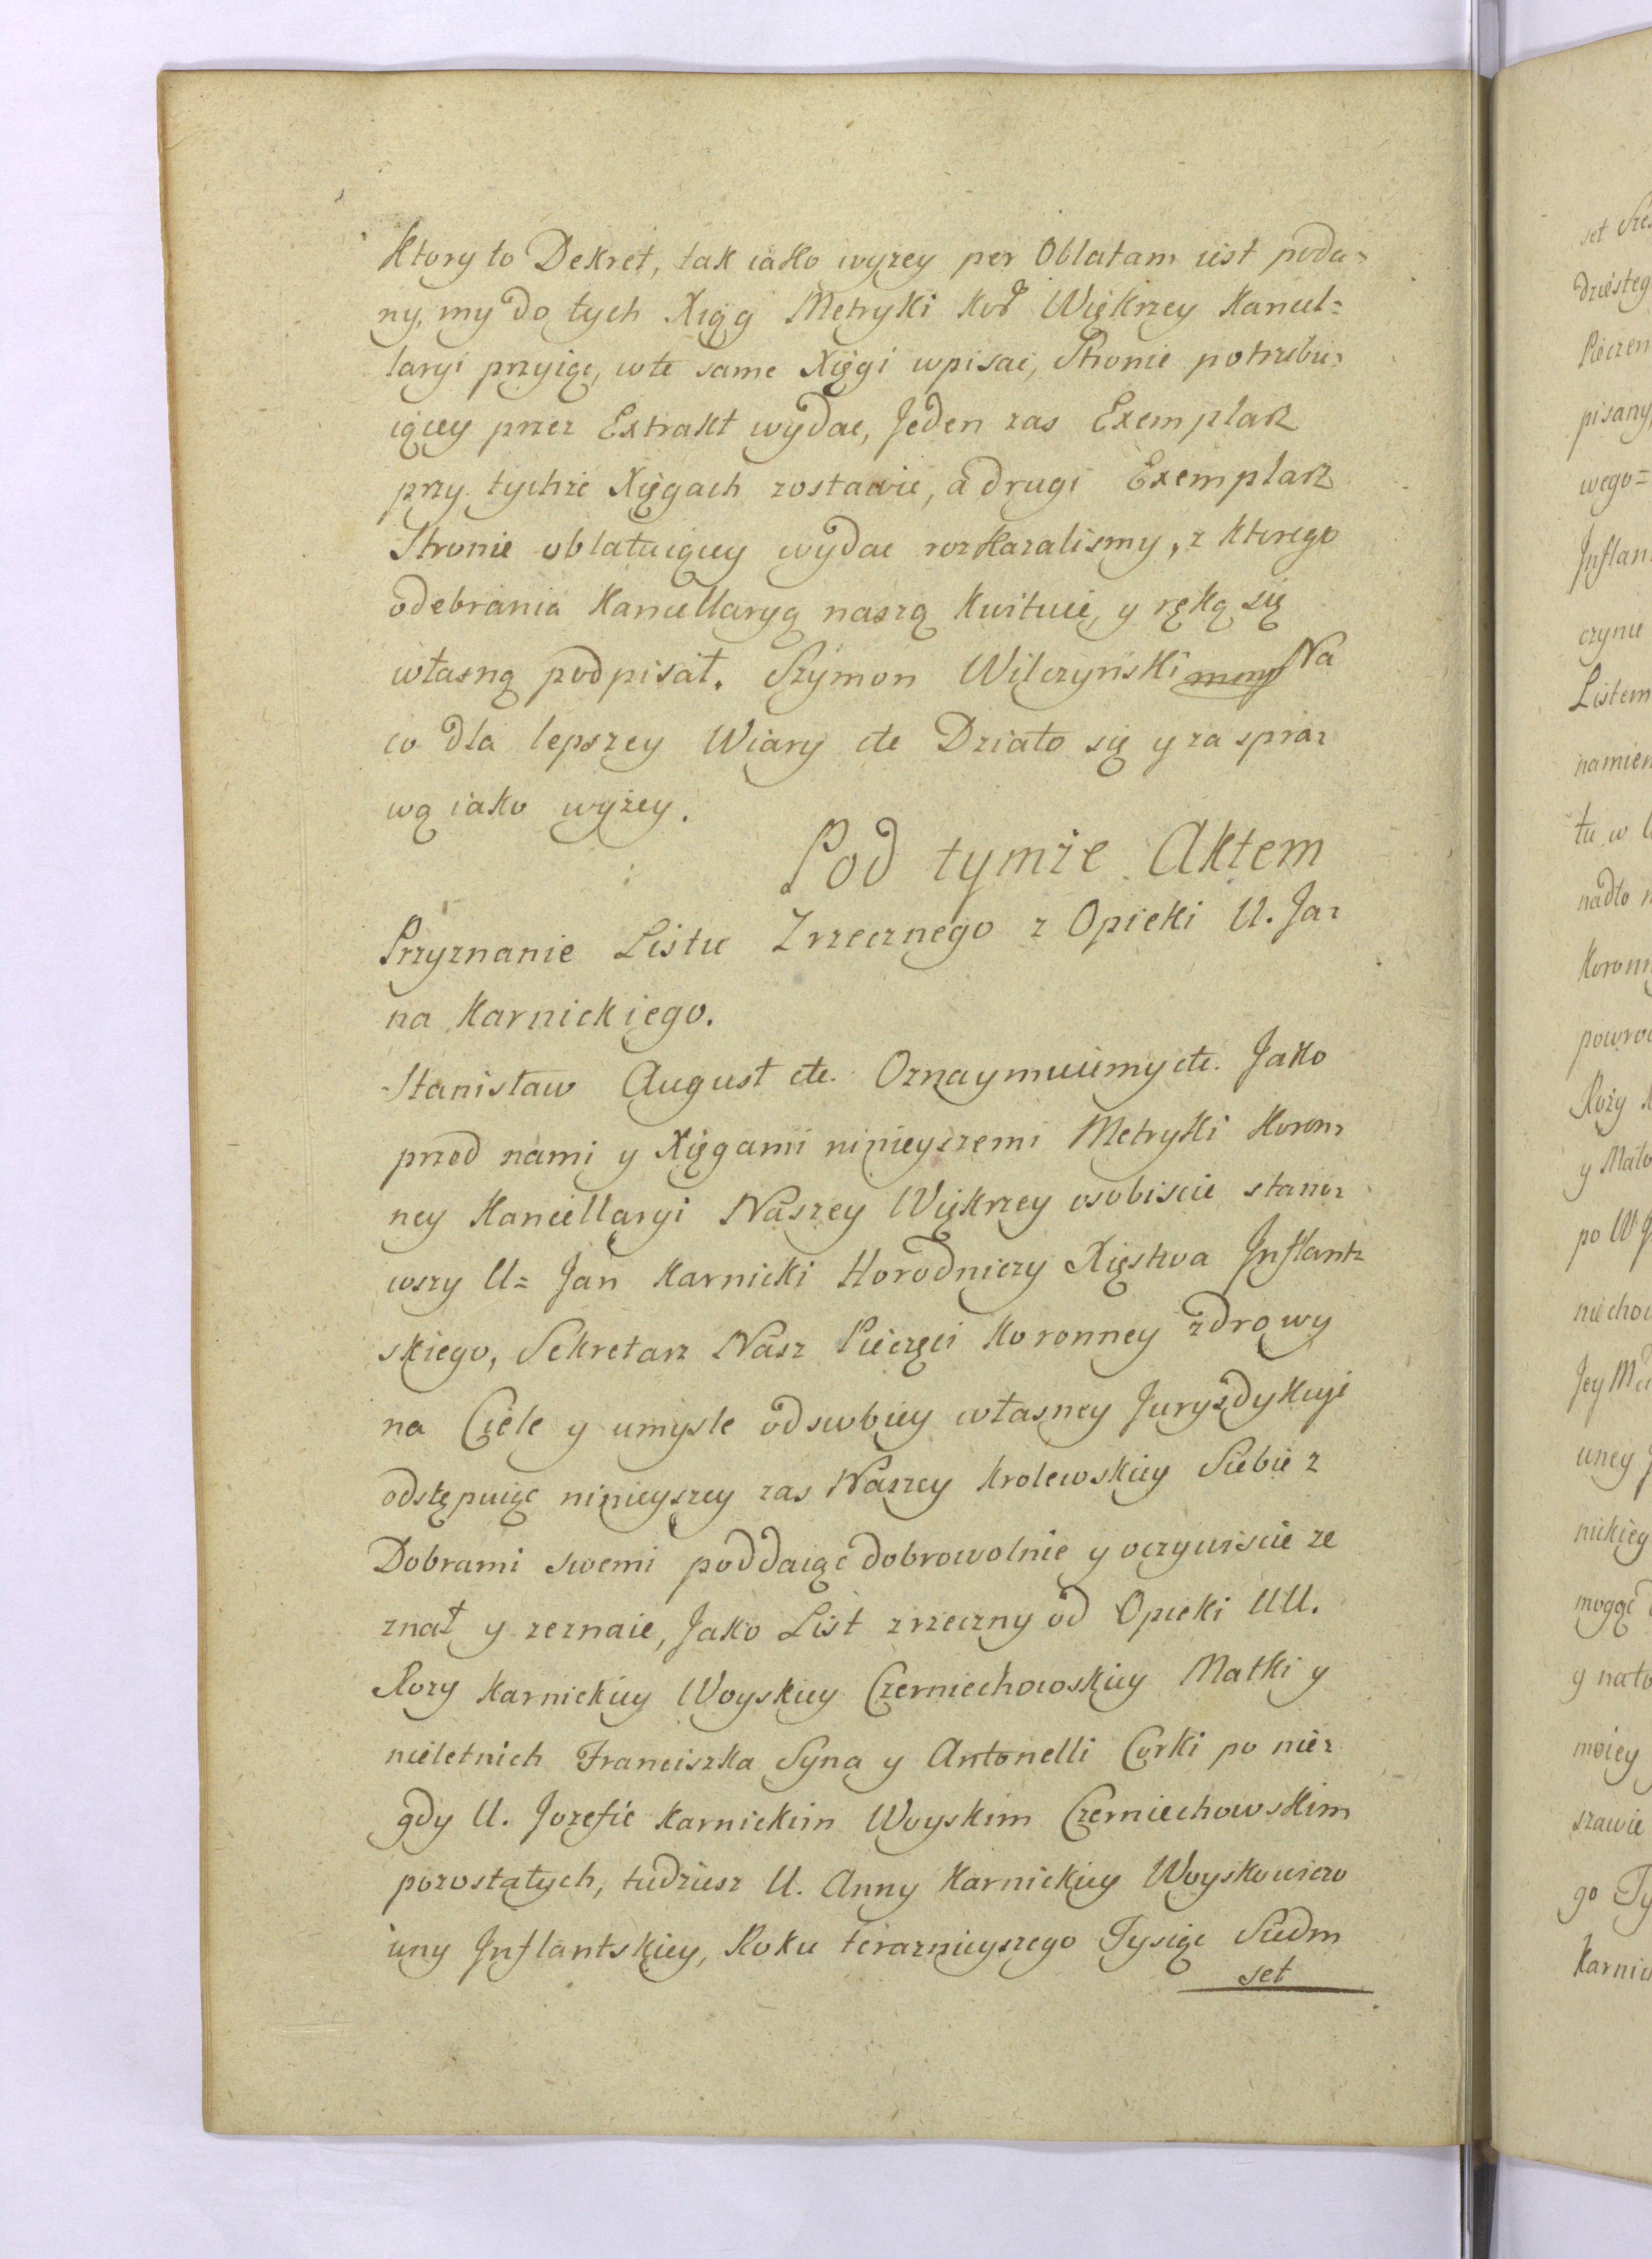 Ktory to Dekret, tak iako wyzey per Oblatam iest poda=
ny, my do tych Xiąg Metryki Kor Większey Kancel=
laryi przyiąć, w te same Xięgi wpisać, Stronie potrzebu=
iącey przez Extrakt wydac, Jeden zas Exemplarz
przy tychze Xięgach zostawic, a drugi Exemplarz
Stronie oblatuiącey wydac rozkazalismy, z ktorego
odebrania Kancellaryą naszą kwituie, y ręką się
własną podpisał. Szymon Wilczyński mp Na
co dla lepszey Wiary etc Działo się y za spra=
wą iako wyzey.
Pod tymze Aktem
Przyznanie Listu Zrzecznego z Opieki U. Ja=
na Karnickiego.
Stanisław August etc. Oznaymuiemy etc. Jako
przed nami y Xięgami ninieyszemi Metryki Koron=
ney Kancellaryi Naszey Większey osobiscie stano=
wszy U= Jan Karnicki Horodniczy Xięstwa Jnflant=
skiego, Sekretarz Nasz Pieczęci Koronney zdrowy
na Ciele y umysle od swoiey własney Juryzdykcyi
odstępuiąc ninieyszey zas Naszey Krolewskiey Siebie z
Dobrami swemi poddaiąc dobrowolnie y oczywiscie ze
znał y zeznaie, Jako List zrzeczny od Opieki UU.
Rozy Karnickiey Woyskiey Czerniechowskiey Matki y
nieletnich Franciszka Syna y Antonelli Corki po nie=
gdy U. Jozefie Karnickim Woyskim Czerniechowskim
pozostałych, tudziesz U. Anny Karnickiey Woyskowiczo
wny Jnflantskiey, Roku teraznieyszego Tysiąc Siedm
set